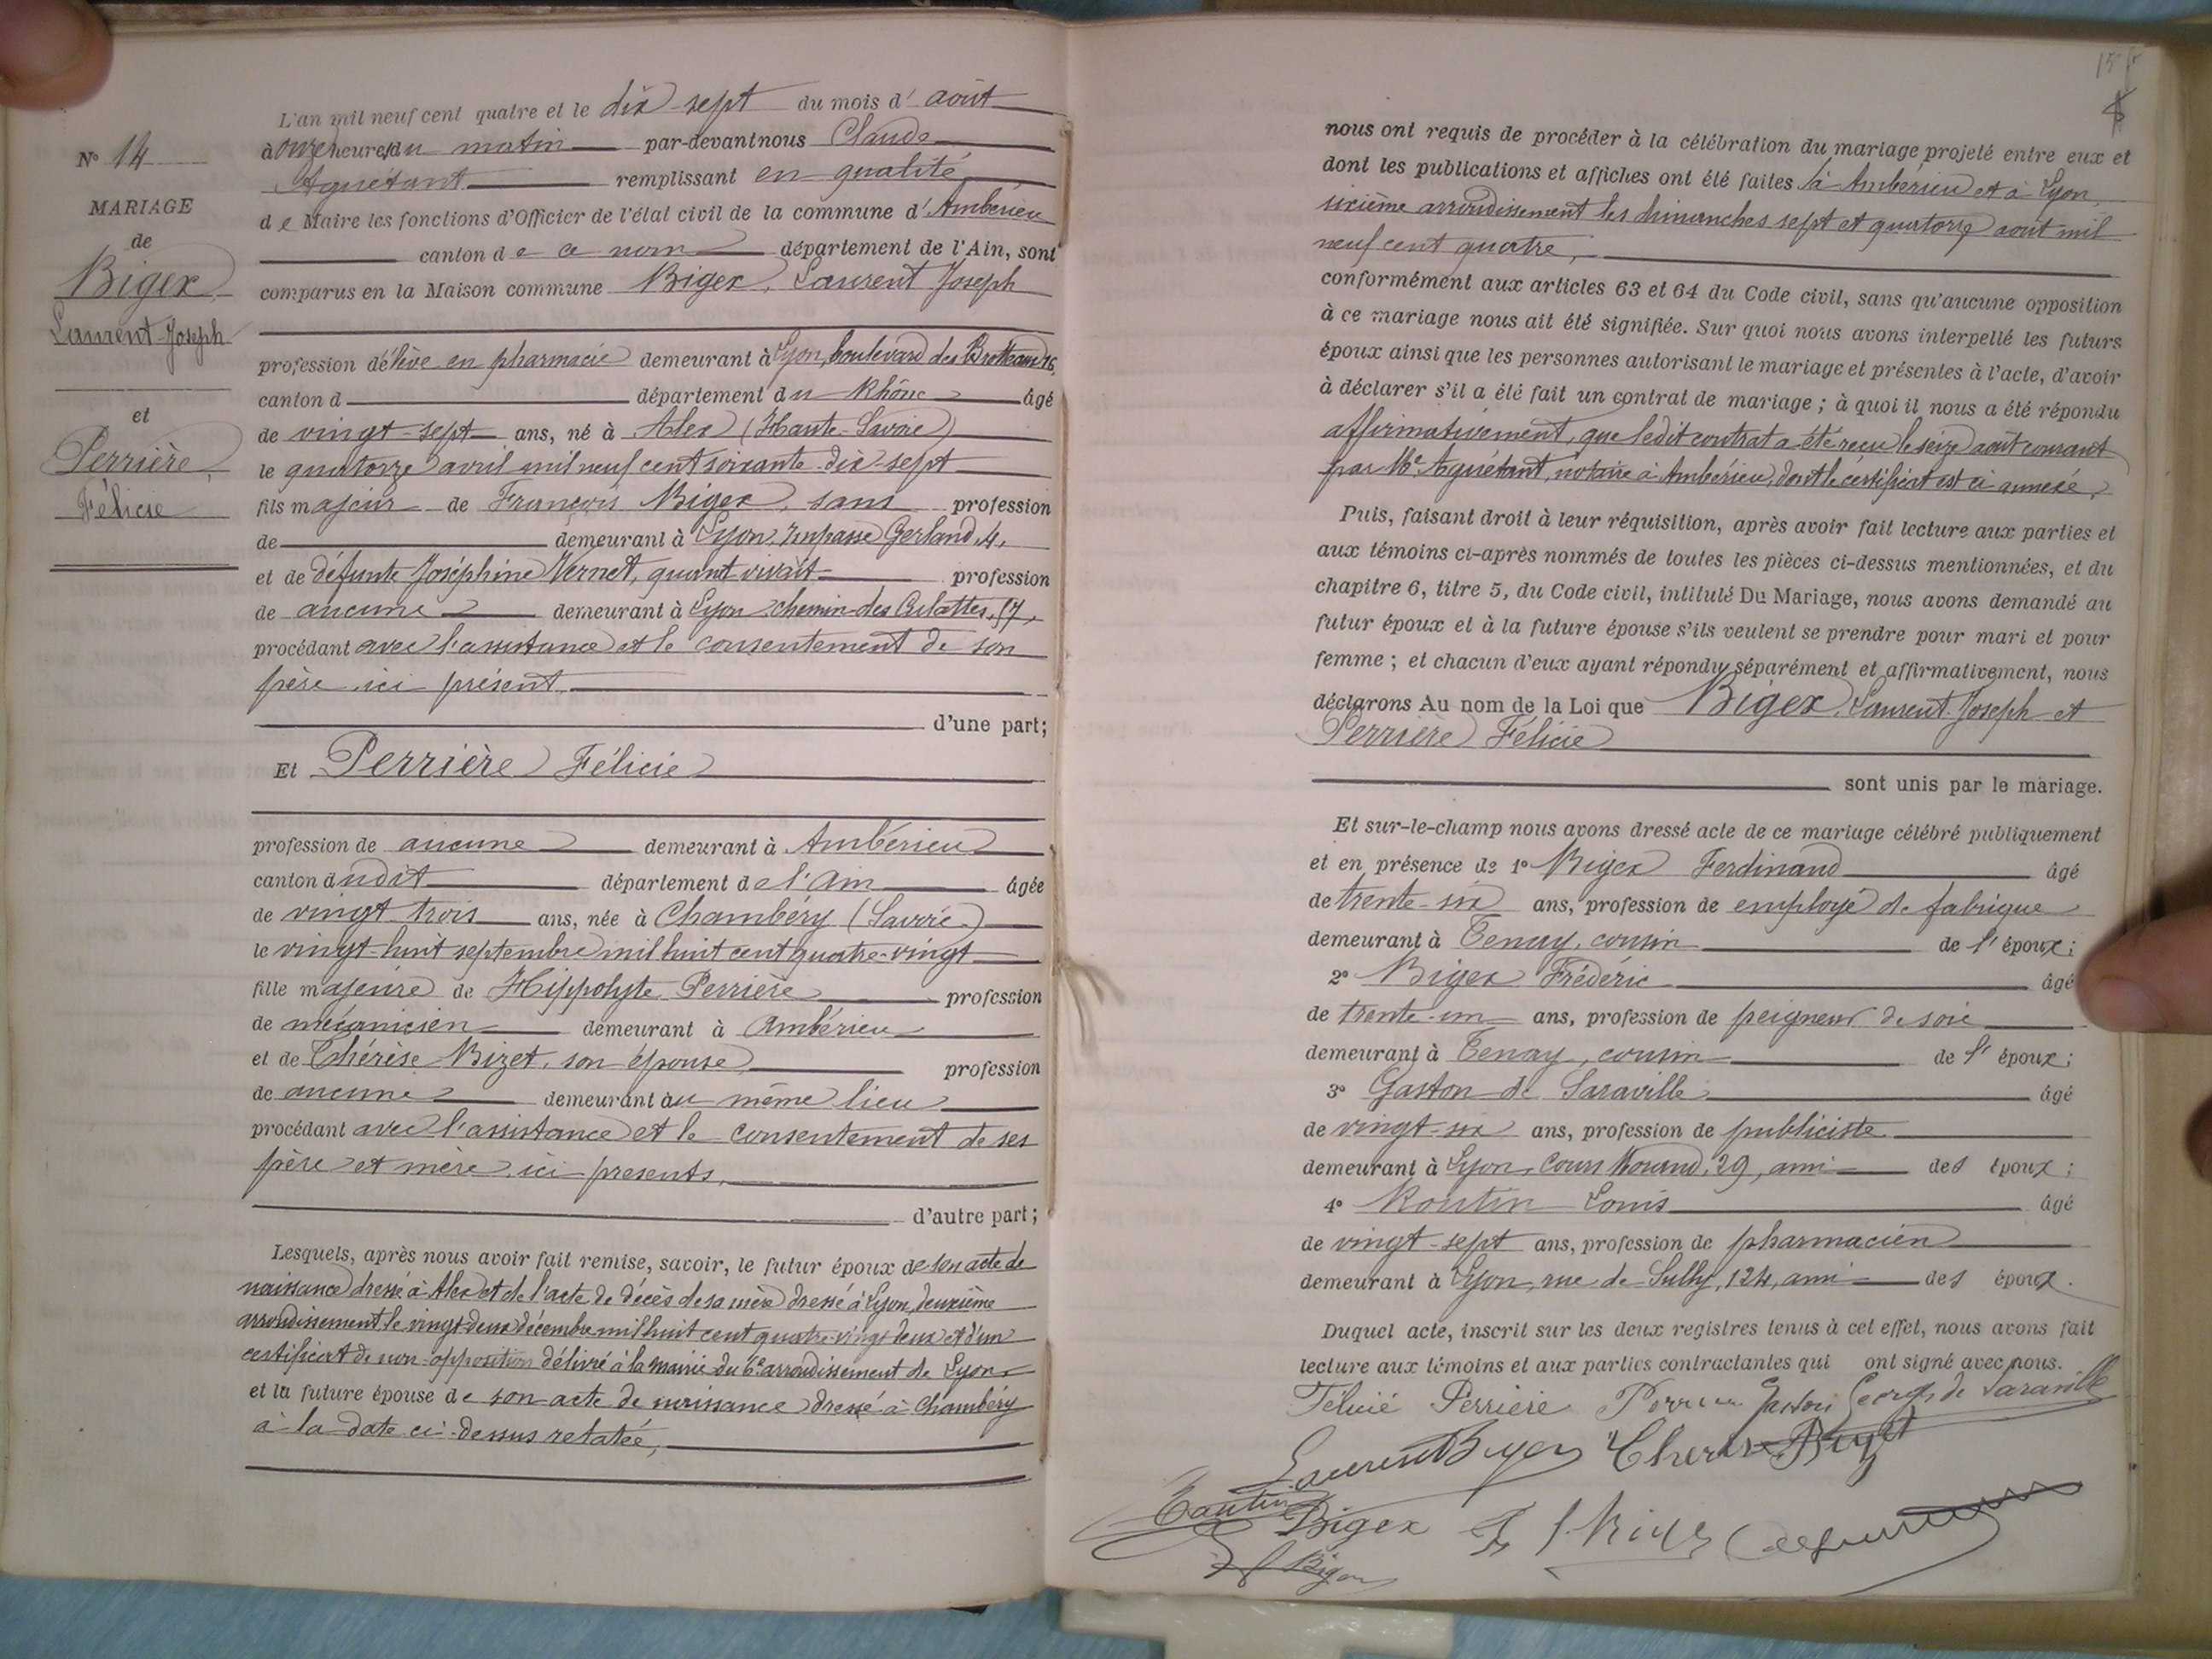 N° 14
MARIAGE
de
Bigex
Laurent Joseph
et
Perrière
Félicie
L'an mil neuf cent quatre et le dix-sept du mois d'août
à onze heures du matin par-devant nous Claude
Aguétant remplissant en qualité
de Maire les fonctions d'Officier de l'état civil de la commune d'Ambérieu
canton de ce nom département de l'Ain, sont
comparus en la Maison commune Bigex, Laurent Joseph
profession d'élève en pharmacie demeurant à Lyon, boulevard des Brotteaux 16,
canton d département du Rhône âgé
de vingt-sept ans, né à Alex (Haute-Savoie)
le quatorze avril mil neuf cent soixante-dix-sept
fils majeur de François Bigex, sans profession
de demeurant à Lyon, Impasse Gerland, 4,
et de défunte Joséphine Vernet, quand vivait profession
de aucune demeurant à Lyon chemin des Culattes, 57,
procédant avec l'assistance et le consentement de son
père ici présent,
d'une part;
Et Perrière Félicie
profession de aucune demeurant à Ambérieu
canton dudit département de l'Ain âgée
de vingt trois ans, née à Chambéry (Savoie)
le vingt-huit septembre mil huit cent quatre-vingt
fille majeure de Hippolyte Perrière profession
de mécanicien demeurant à Ambérieu
et de Thérèse Bizet, son épouse profession
de aucune demeurant au même lieu
procédant avec l'assistance et le consentement de ses
père et mère ici presents,
d'autre part;
Lesquels, après nous avoir fait remise, savoir, le futur époux de son acte de
naissance dressé à Alex et de l'acte de décès de sa mère dressé à Lyon, deuxième
arrondissement le vingt-deux décembre mil huit cent quatre-vingt deux et d'un
certificat de non-opposition délivré à la mairie du 6e arrondissement de Lyon
et la future épouse de son acte de naissance dressé à Chambéry
à la date ci-dessus relatée,
nous ont requis de procéder à la célébration du mariage projeté entre eux et
dont les publications et affiches ont été faites à Ambérieu et à Lyon,
sixième arrondissement les dimanches sept et quatorze août mil
neuf cent quatre,
conformément aux articles 63 et 64 du Code civil, sans qu'aucune opposition
à ce mariage nous ait été signifiée. Sur quoi nous avons interpellé les futurs
époux ainsi que les personnes autorisant le mariage et présentes à l'acte, d'avoir
à déclarer s'il a été fait un contrat de mariage; à quoi il nous a été répondu
affirmativement, que ledit contrat a été reçu le seize août courant
par Me Aguétant, notaire à Ambérieu, dont le certificat est ci annexé,
Puis, faisant droit à leur réquisition, après avoir fait lecture aux parties et
aux témoins ci-après nommés de toutes les pièces ci-dessus mentionnées, et du
chapitre 6, titre 5, du Code civil, intitulé Du Mariage, nous avons demandé au
futur époux et à la future épouse s'ils veulent se prendre pour mari et pour
femme; et chacun d'eux ayant répondu séparément et affirmativement, nous
déclarons Au nom de la Loi que Bigex, Laurent-Joseph et
Perrière Félicie
sont unis par le mariage.
Et sur-le-champ nous avons dressé acte de ce mariage célébré publiquement
et en présence de 1° Bigex Ferdinand âgé
de trente-six ans, profession de employé de fabrique
demeurant à Tenay, cousin de l'époux;
2° Bigex Frédéric âgé
de trente-un ans, profession de peigneur de soie
demeurant à Tenay, cousin de l'époux;
3° Gaston de Saraville âgé
de vingt-six ans, profession de publiciste
demeurant à Lyon, Cours Morand, 29, ami des époux;
4° Routin Louis âgé
de vingt-sept ans, profession de pharmacien
demeurant à Lyon, rue de Sully, 124, ami des époux.
Duquel acte, inscrit sur les deux registres tenus à cet effet, nous avons fait
lecture aux témoins et aux parties contractantes qui ont signé avec nous.
Félicie Perrière Perrière Gaston Georges de Saraville
Laurent Bigex Thérèse Bizet
Routin Bigex
Bigex